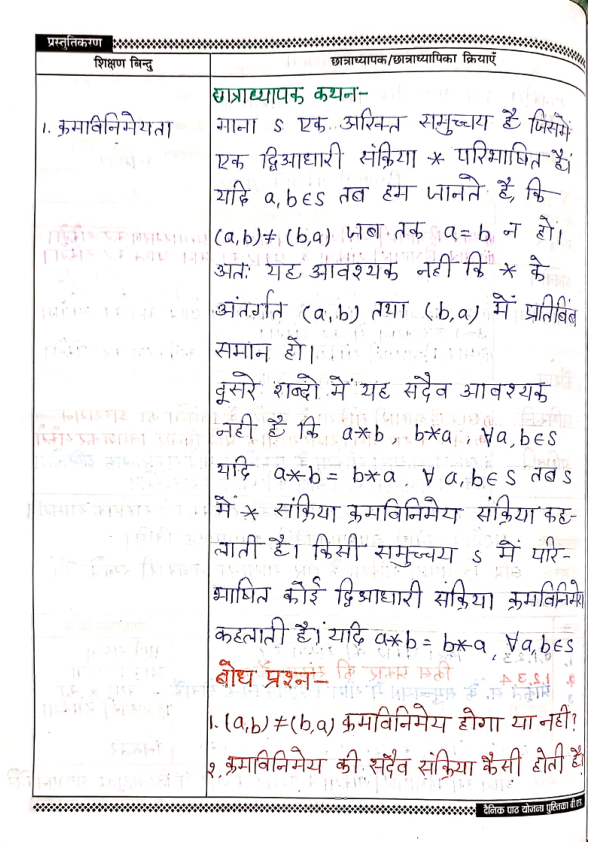 प्रस्तुतिकरण
शिक्षण बिन्दु
छात्राध्यापक/छात्राध्यापिका क्रियाएँ
छात्राध्यापक कथन-
1. क्रमविनिमेयता
माना S एक अरिक्त समुच्चय है जिसमें
एक द्विआधारी संक्रिया * परिभाषित है।
यदि a,b∈S तब हम जानते है, कि
(a,b)≠(b,a) जब तक a=b न हो।
अतः यह आवश्यक नहीं कि * के
अंतर्गत (a,b) तथा (b,a) में प्रतिबिंब
समान हो।
दूसरे शब्दो में यह सदैव आवश्यक
नही है कि a*b, b*a, ∀a,b∈S
यदि a*b = b*a, ∀ a,b∈S तब S
में * संक्रिया क्रमविनिमेय संक्रिया कह-
लाती है। किसी समुच्चय S में परि-
भाषित कोई द्विआधारी सक्रिया क्रमविनिमेय
कहलाती है। यदि a*b = b*a, ∀a,b∈S
बोध प्रश्न-
1. (a,b)≠(b,a) क्रमविनिमेय होगा या नहीं?
२. क्रमविनिमेय की सदैव संक्रिया कैसी होती है?
दैनिक पाठ योजना पुस्तिका बी.एड